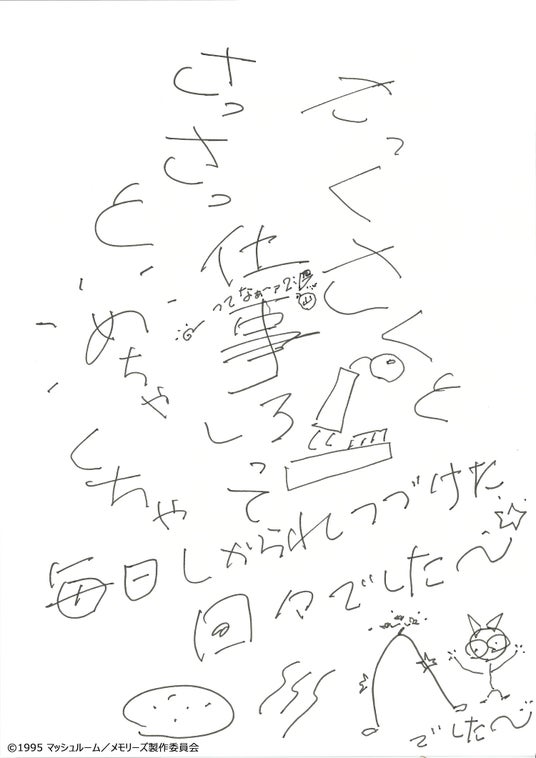 さっくさくと
さっさっと
仕事しろって
ってなぁーァ
めちゃくちゃ
毎日しかられつづけた
日々でした〜
でした〜
©1995 マッシュルーム／メモリーズ製作委員会